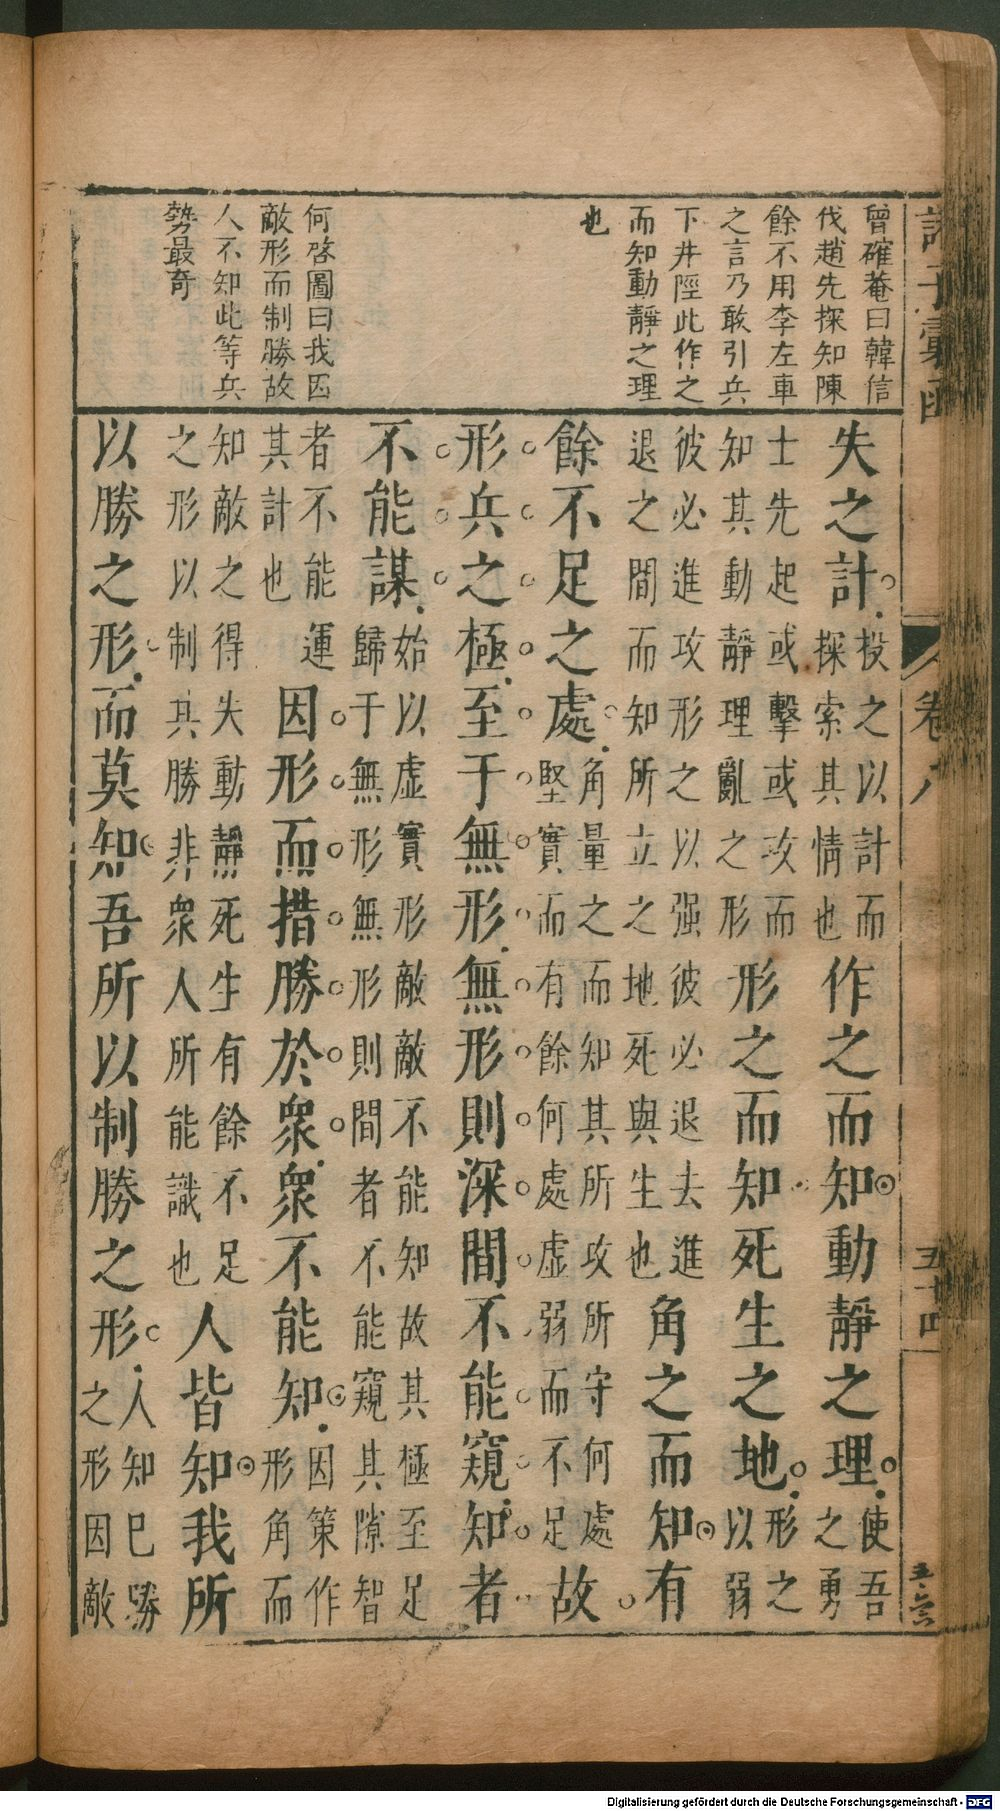 諸子彙函
卷八
五十四
曾確菴曰韓信
伐趙先探知陳
餘不用李左車
之言乃敢引兵
下井陘此作之
而知動靜之理
也
何啓圖曰我因
敵形而制勝故
人不知此等兵
勢最竒
失之計投之以計而探索其情也作之而知動靜之理使吾之勇
士先起或擊或攻而知其動靜理亂之形形之而知死生之地形之以弱
彼必進攻形之以强彼必退去進退之間而知所立之地死與生也角之而知有
餘不足之處角量之而知其所攻所守何處堅實而有餘何處虛弱而不足故
形兵之極至于無形無形則深間不能窺知者
不能謀始以虛實形敵敵不能知故其極至足歸于無形無形則間者不能窺其隙智
者不能運其計也因形而措勝於衆衆不能知因策作形角而
知敵之得失動靜死生有餘不足之形以制其勝非衆人所能識也人皆知我所
以勝之形而莫知吾所以制勝之形人知巳勝之形因敵
Digitalisierung gefördert durch die Deutsche Forschungsgemeinschaft - DFG